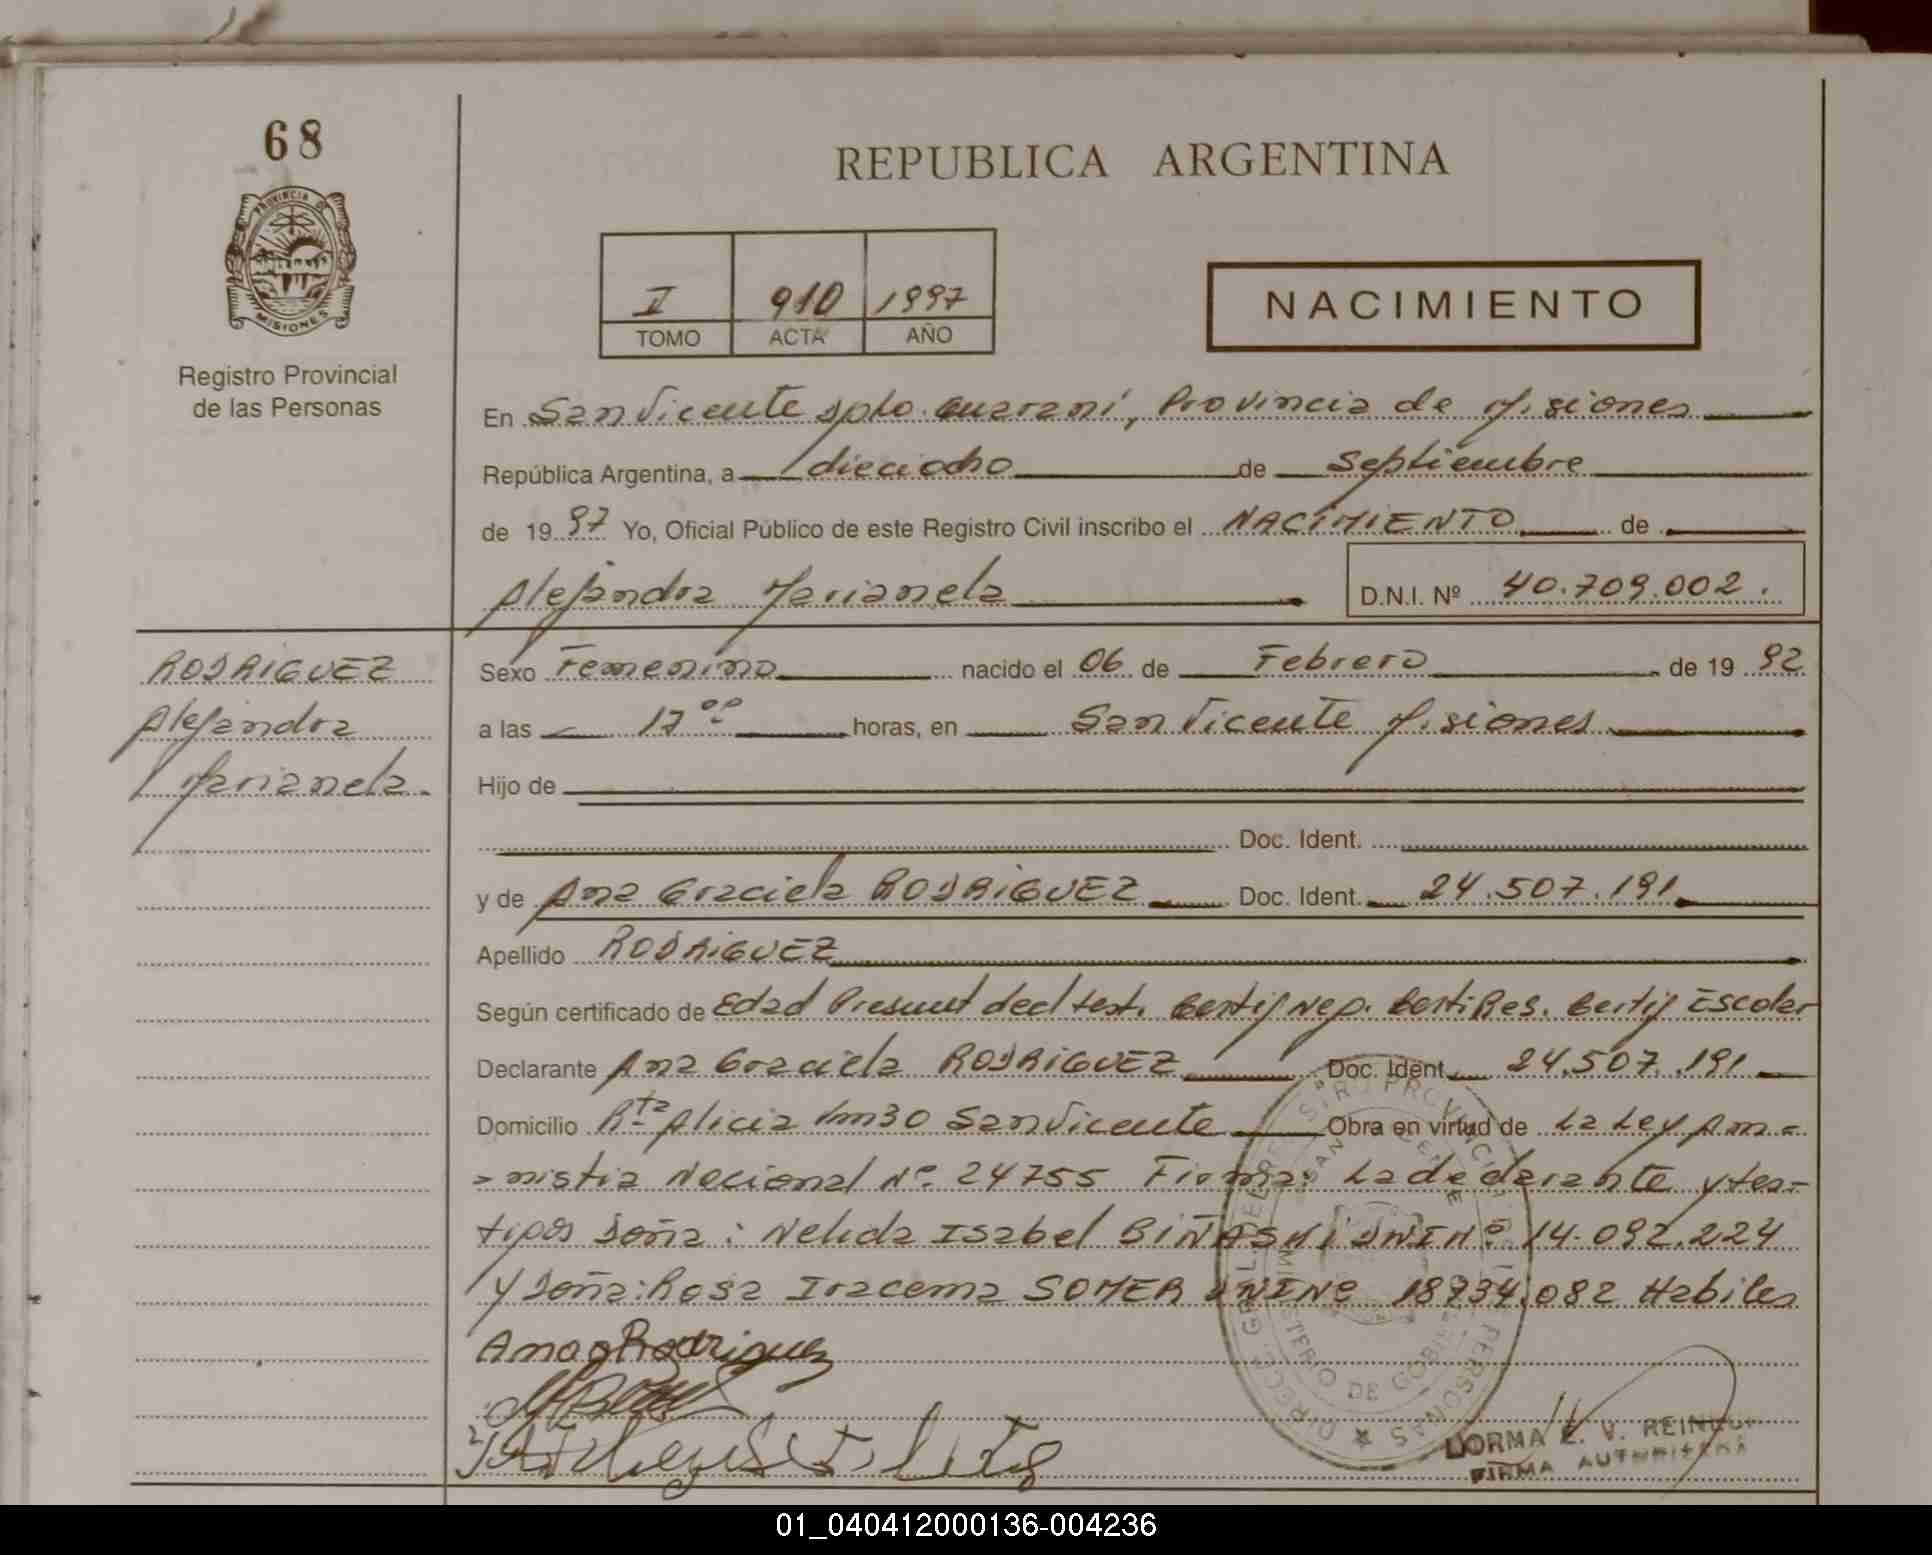 68
PROVINCIA DE
MISIONES
Registro Provincial
de las Personas
REPUBLICA ARGENTINA
I 910 1997
TOMO ACTA AÑO
NACIMIENTO
En San Vicente Dpto. Guaraní, Provincia de Misiones
República Argentina, a dieciocho de Septiembre
de 1997 Yo, Oficial Público de este Registro Civil inscribo el NACIMIENTO de
Alejandra Marianela D.N.I. Nº 40.709.002.
RODRIGUEZ
Alejandra
Marianela.
Sexo Femenino nacido el 06 de Febrero de 1992
a las 17 00 horas, en San Vicente Misiones
Hijo de
Doc. Ident.
y de Ana Graciela RODRIGUEZ Doc. Ident. 24.507.191
Apellido RODRIGUEZ
Según certificado de Edad Presunt decl test. Certif Neg. Certi Res. Certif Escolar
Declarante Ana Graciela RODRIGUEZ Doc. Ident. 24.507.191
Domicilio Rta Alicia km30 San Vicente Obra en virtud de La Ley Am=
=nistia Nacional Nº 24755 Firma: La declarante y tes=
tigos Doña: Nelida Isabel BIÑASKI DNI Nº 14.092.224
y Doña: Rosa Iracema SOMER DNI Nº 18734.082 Habiles
Ana G Rodriguez
DIRECC. GRAL. DE REGISTRO PROVINCIAL DE PERSONAS
SAN VICENTE
MINISTERIO DE GOBIERNO
FIRMA AUTORIZADA
01_040412000136-004236